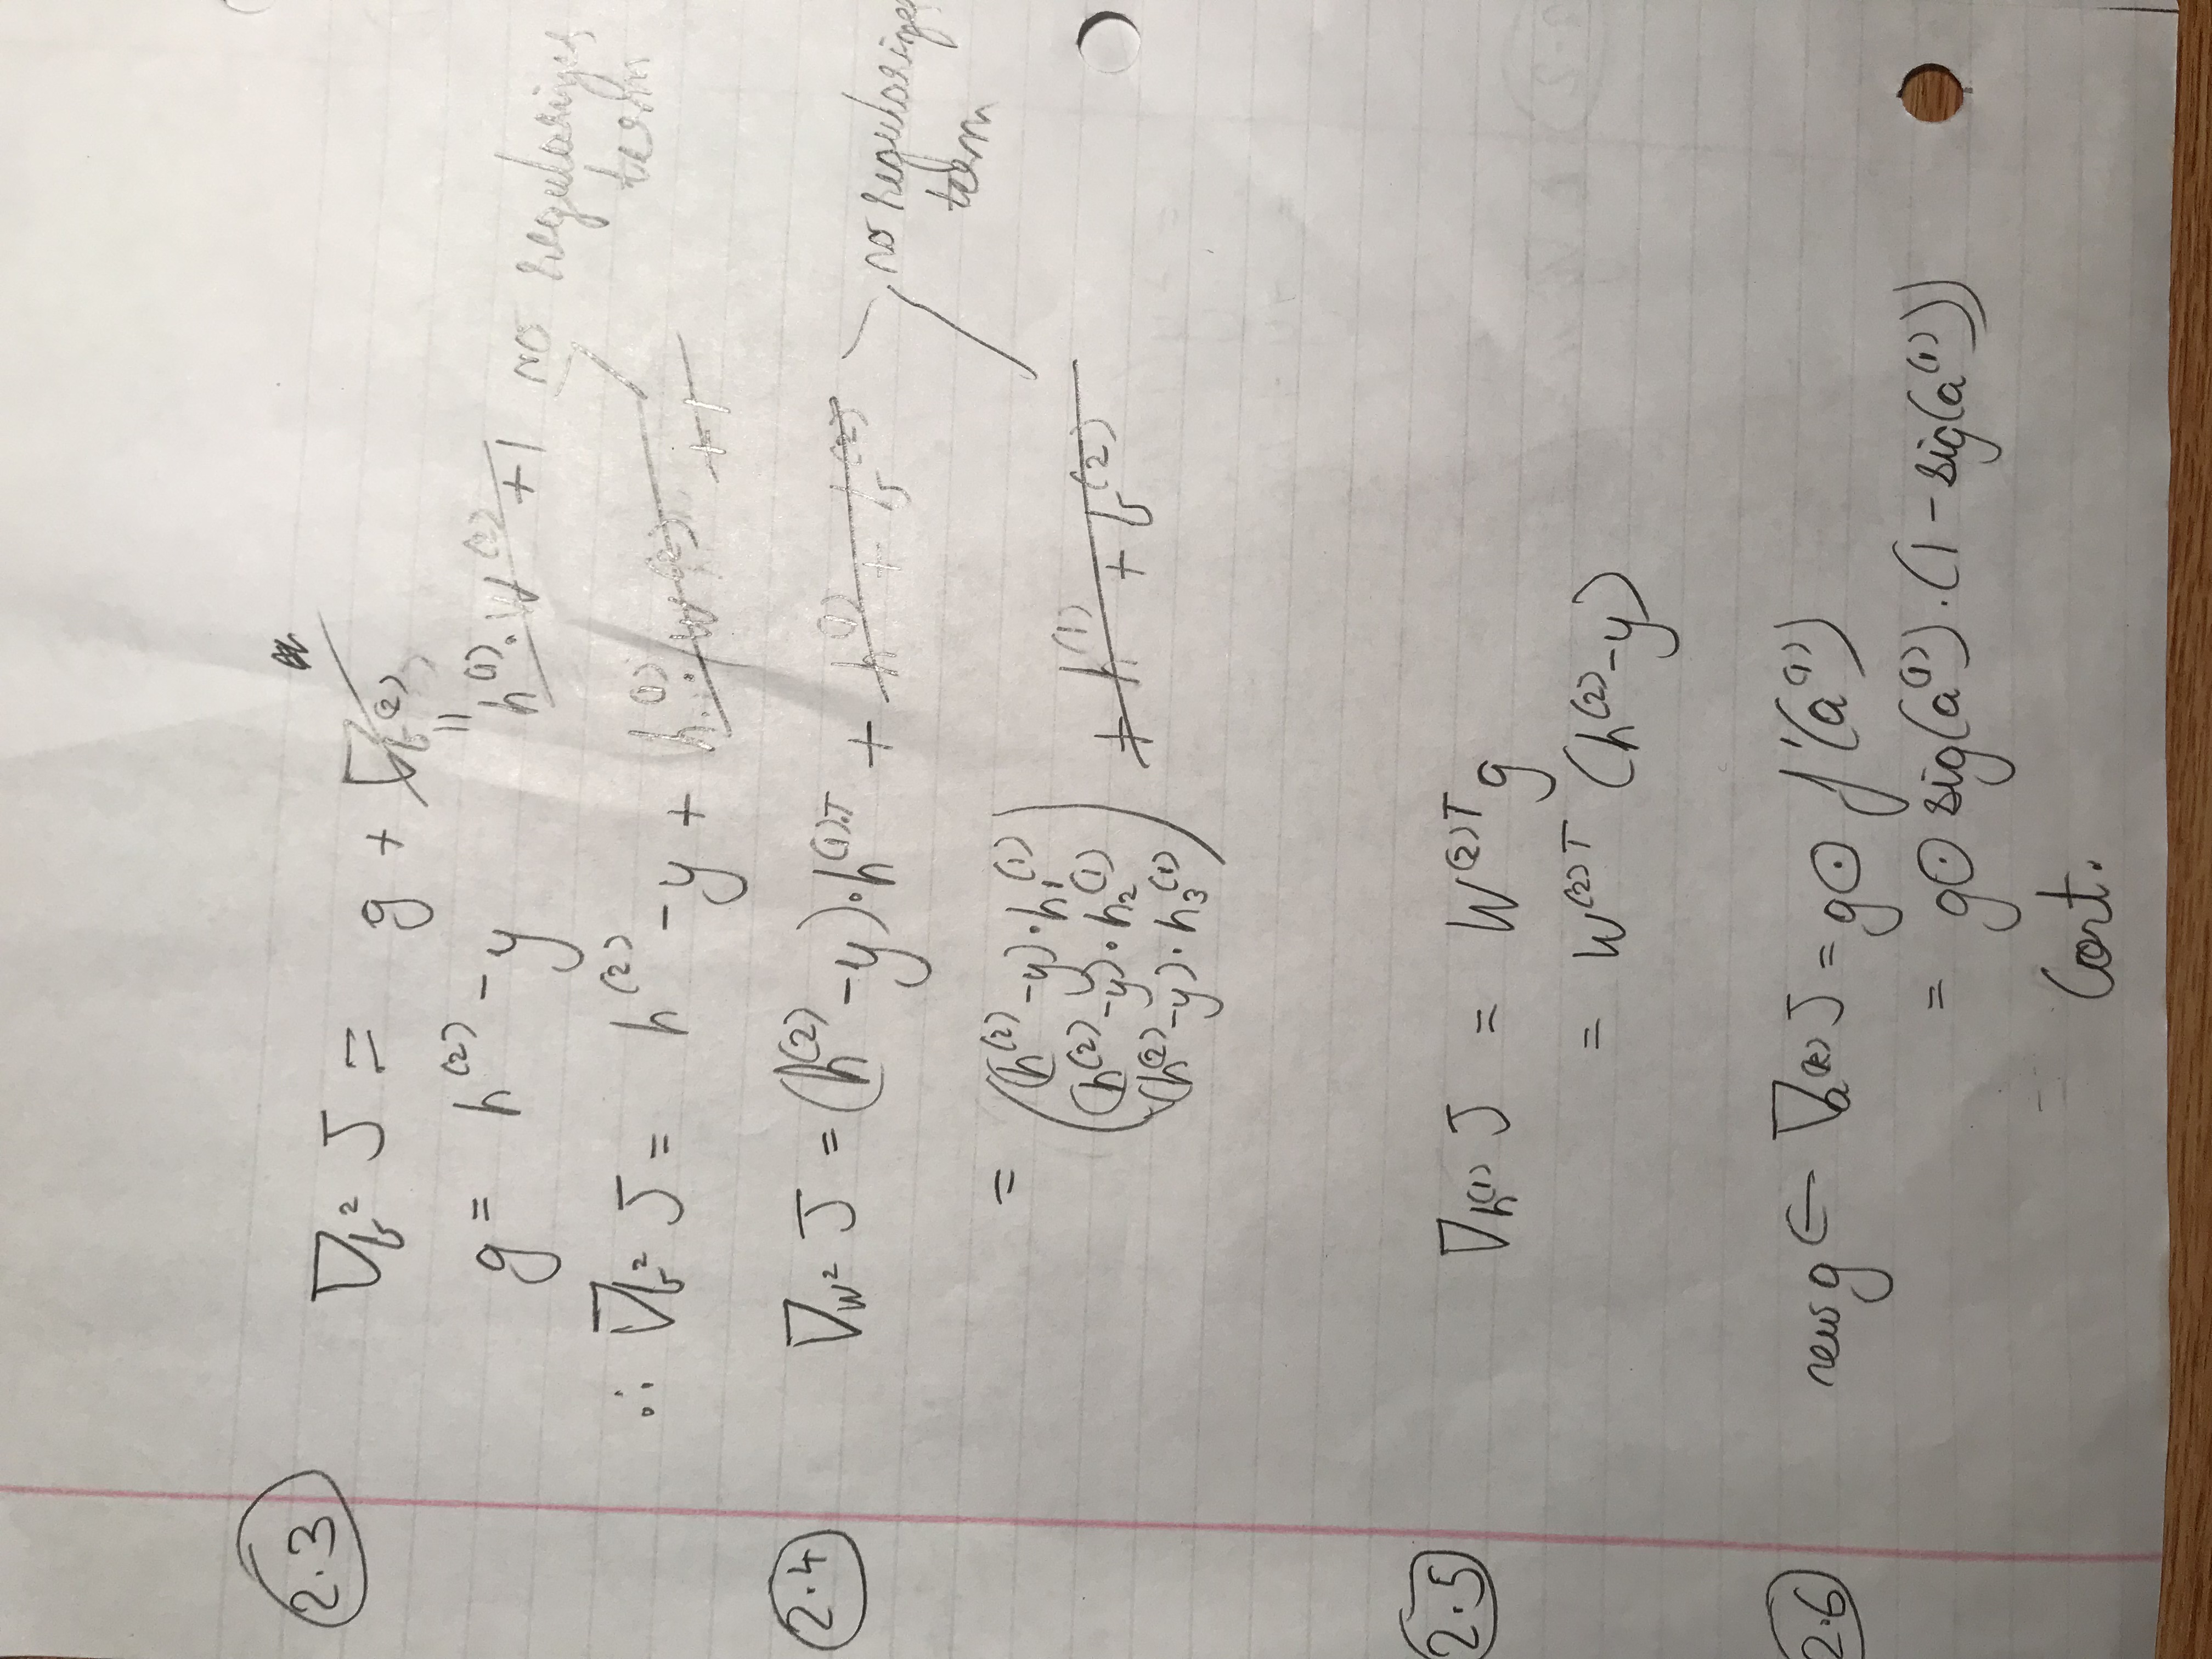 2.3
∇b² J = g + ∇b⁽²⁾
g = h⁽²⁾ - y
"
h⁽¹⁾. W⁽²⁾ + 1
no regularizer term
∴ ∇b² J = h⁽²⁾ - y + h⁽¹⁾. W⁽²⁾ + 1
2.4
∇w² J = (h⁽²⁾ - y) . h⁽¹⁾·ᵀ + h⁽¹⁾ + b⁽²⁾
no regularizer term
= ( (h⁽²⁾ - y) . h₁⁽¹⁾
(h⁽²⁾ - y) . h₂⁽¹⁾
(h⁽²⁾ - y) . h₃⁽¹⁾ ) + h⁽¹⁾ + b⁽²⁾
2.5
∇h⁽¹⁾ J = W⁽²⁾ᵀ g
= W⁽²⁾ᵀ (h⁽²⁾ - y)
2.6
new g ← ∇a⁽ᵏ⁾ J = g ⊙ f'(a⁽¹⁾)
= g ⊙ sig(a⁽¹⁾) . (1 - sig(a⁽¹⁾))
Cont.